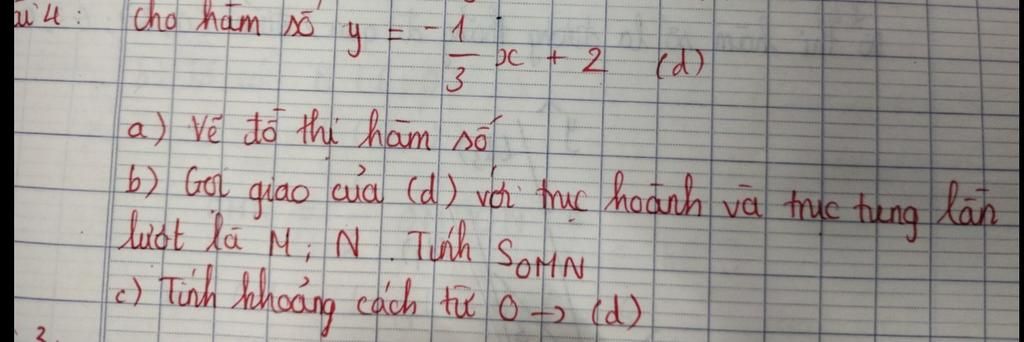 Câu 4: Cho hàm số y = -1/3 x + 2 (d)
a) Vẽ đồ thị hàm số
b) Gọi giao của (d) với trục hoành và trục tung lần
lượt là M, N. Tính SOMN
c) Tính khoảng cách từ O → (d)
2